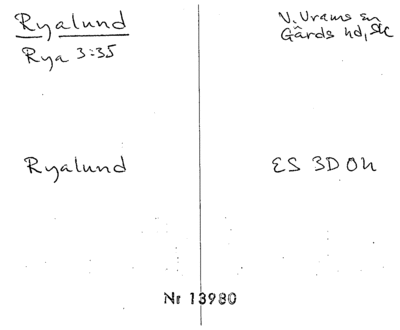 Ryalund
Rya 3:35
V. Vrams sn
Gärds hd, Sk
Ryalund
ES 3D 0h
Nr 13980